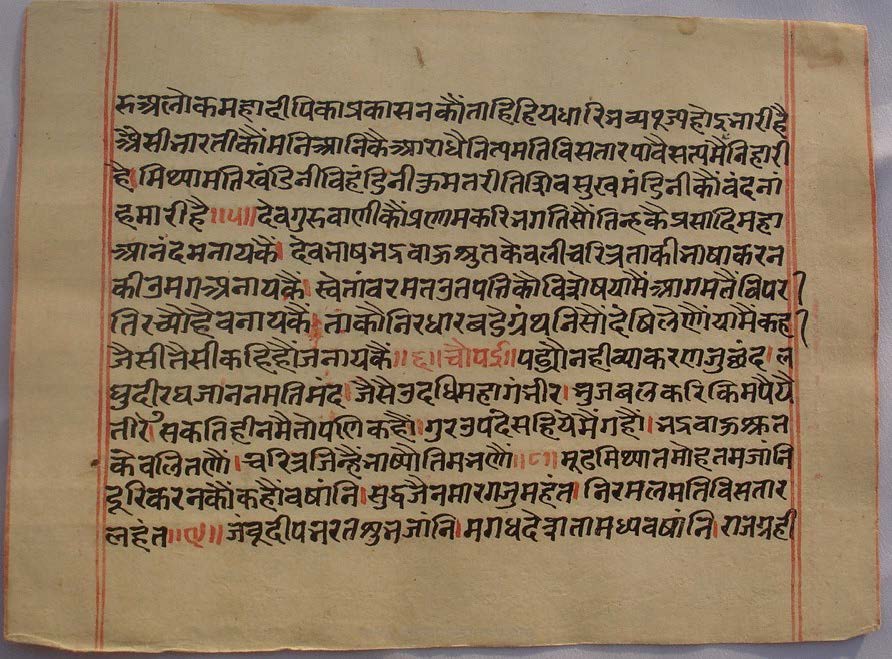 रुअलोकमहादीपिकाप्रकासनकौंताहिहियधारिभव्यपूज्यहोऊनारीहै
अैसीभारतीकौंमनिआनिकैआराधैनित्यमतिविसतारपावैसत्यमैनिहारी
है।मिथ्यामतिखंडिनीविहंडिनीकुमतरीतिशिवसुखमंडिनीकौंवंदनां
हमारीहै॥५॥देवगुरुवाणीकौंप्रणमकरिभगतिसौंतिन्हकैप्रसादिमहा
आनंदमनायकैं।देवभाषभद्रवाऊश्रुतकेवलीचरित्रताकीभाषाकरन
कीउमगअनायकैं।स्वेतांवरमतउतपतिकौविशेषयामैंआगमतैंविपरी
तिरच्यौहैवनायकैं।ताकौनिरधारबडेग्रंथनिसौंदेषिलेणौंयामैंकही
जैसीतैसीकहिहौंजनायकैं॥६॥चौपई॥पड्यौनहीव्याकरणजुछंद।ल
घुदीरघजाननमतिमंद।जैसैउदधिमहागंभीर।भुजबलकरिकिमपैयै
तीर७सकतिहीनमैतोपणिकहौं।गुरउपदेसहियेमैंगहौं।भद्रवाऊश्रुत
केवलितणौं।चरित्रजिन्हैभाष्यौतिमभणौं॥८॥मूढमिथ्यातमोहतमजांनि
दूरिकरनकौंकहौंवषांनि।सुद्धजैनमारगजुमहंत।निरमलमतिविसतार
लहंत॥९॥जंबूदीपभरतशुभजांनि।मगधदेशतामध्यवषांनि।राजग्रही